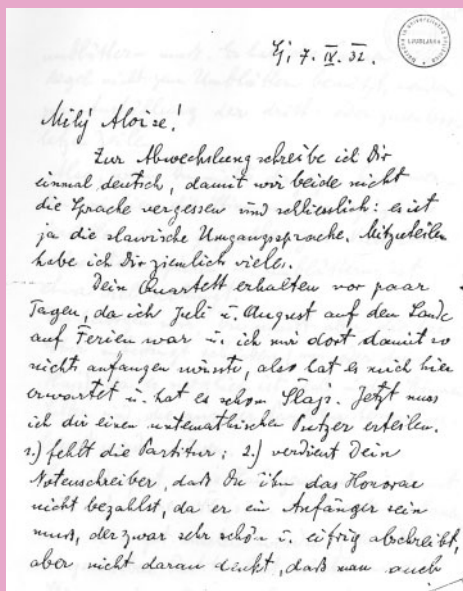 Lj, 7. IX. 32.
LJUBLJANA
Milý Aloise!
Zur Abwechslung schreibe ich Dir
einmal deutsch, damit wir beide nicht
die Sprache vergessen und schliesslich: es ist
ja die slawische Umgangssprache. Mitzuteilen
habe ich Dir ziemlich vieles.
Dein Quartett erhalten vor paar
Tagen, da ich Juli u. August auf dem Lande
auf Ferien war u. ich mir dort damit so
nichts anfangen wüsste, also hat es mich hier
erwartet u. hat es schon Šlajs. Jetzt muss
ich dir einen Putzer erteilen.
1.) fehlt die Partitur; 2.) verdient Dein
Notenschreiber, daß Du ihm das Honorar
nicht bezahlst, da er ein Anfänger sein
muß, der zwar sehr schön u. eifrig abschreibt,
aber nicht daran denkt, daß man auch